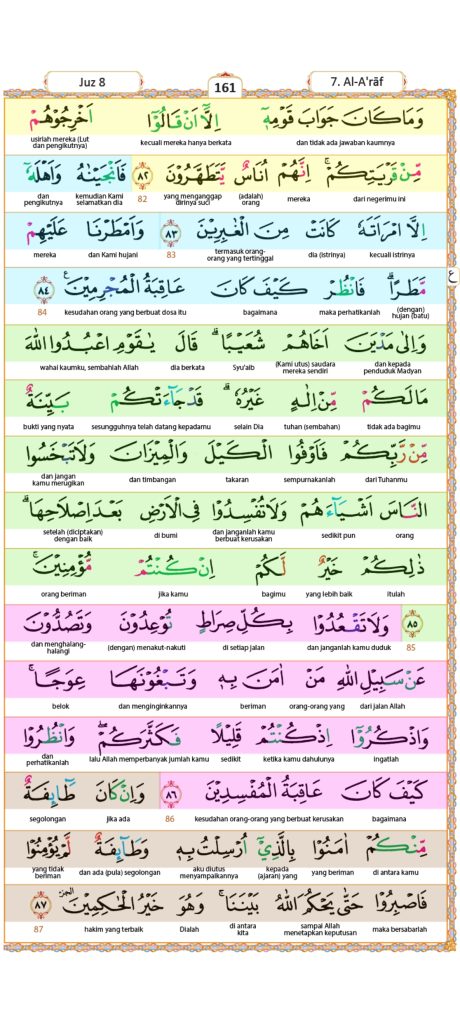 Juz 8
161
7. Al-A'rāf
وَمَا كَانَ جَوَابَ قَوْمِهٖٓ اِلَّآ اَنْ قَالُوْٓا اَخْرِجُوْهُمْ
dan tidak ada jawaban kaumnya kecuali mereka hanya berkata usirlah mereka (Lut dan pengikutnya)
مِّنْ قَرْيَتِكُمْۚ اِنَّهُمْ اُنَاسٌ يَّتَطَهَّرُوْنَ ٨٢ فَاَنْجَيْنٰهُ وَاَهْلَهٗٓ
dari negerimu ini mereka (adalah) orang yang menganggap dirinya suci 82 kemudian Kami selamatkan dia dan pengikutnya
اِلَّا امْرَاَتَهٗ كَانَتْ مِنَ الْغٰبِرِيْنَ ٨٣ وَاَمْطَرْنَا عَلَيْهِمْ
kecuali istrinya dia (istrinya) termasuk orang-orang yang tertinggal 83 dan Kami hujani mereka
مَّطَرًاۗ فَانْظُرْ كَيْفَ كَانَ عَاقِبَةُ الْمُجْرِمِيْنَࣖ ٨٤
ع
(dengan) hujan (batu) maka perhatikanlah bagaimana kesudahan orang yang berbuat dosa itu 84
وَاِلٰى مَدْيَنَ اَخَاهُمْ شُعَيْبًاۗ قَالَ يٰقَوْمِ اعْبُدُوا اللّٰهَ
dan kepada penduduk Madyan (Kami utus) saudara mereka sendiri Syu'aib dia berkata wahai kaumku, sembahlah Allah
مَا لَكُمْ مِّنْ اِلٰهٍ غَيْرُهٗۗ قَدْ جَاۤءَتْكُمْ بَيِّنَةٌ
tidak ada bagimu tuhan (sembahan) selain Dia sesungguhnya telah datang kepadamu bukti yang nyata
مِّنْ رَّبِّكُمْ فَاَوْفُوا الْكَيْلَ وَالْمِيْزَانَ وَلَا تَبْخَسُوا
dari Tuhanmu sempurnakanlah takaran dan timbangan dan jangan kamu merugikan
النَّاسَ اَشْيَاۤءَهُمْ وَلَا تُفْسِدُوْا فِى الْاَرْضِ بَعْدَ اِصْلَاحِهَاۗ
orang sedikit pun dan janganlah kamu berbuat kerusakan di bumi setelah (diciptakan) dengan baik
ذٰلِكُمْ خَيْرٌ لَّكُمْ اِنْ كُنْتُمْ مُّؤْمِنِيْنَۚ
itulah yang lebih baik bagimu jika kamu orang beriman
٨٥ وَلَا تَقْعُدُوْا بِكُلِّ صِرَاطٍ تُوْعِدُوْنَ وَتَصُدُّوْنَ
85 dan janganlah kamu duduk di setiap jalan (dengan) menakut-nakuti dan menghalang-halangi
عَنْ سَبِيْلِ اللّٰهِ مَنْ اٰمَنَ بِهٖ وَتَبْغُوْنَهَا عِوَجًاۚ
dari jalan Allah orang-orang yang beriman dan menginginkannya belok
وَاذْكُرُوْٓا اِذْ كُنْتُمْ قَلِيْلًا فَكَثَّرَكُمْۖ وَانْظُرُوْا
ingatlah ketika kamu dahulunya sedikit lalu Allah memperbanyak jumlah kamu dan perhatikanlah
كَيْفَ كَانَ عَاقِبَةُ الْمُفْسِدِيْنَ ٨٦ وَاِنْ كَانَ طَاۤىِٕفَةٌ
bagaimana kesudahan orang-orang yang berbuat kerusakan 86 jika ada segolongan
مِّنْكُمْ اٰمَنُوْا بِالَّذِيْٓ اُرْسِلْتُ بِهٖ وَطَاۤىِٕفَةٌ لَّمْ يُؤْمِنُوْا
di antara kamu yang beriman kepada (ajaran) yang aku diutus menyampaikannya dan ada (pula) segolongan yang tidak beriman
فَاصْبِرُوْا حَتّٰى يَحْكُمَ اللّٰهُ بَيْنَنَاۚ وَهُوَ خَيْرُ الْحٰكِمِيْنَ ٨٧
maka bersabarlah sampai Allah menetapkan keputusan di antara kita Dialah hakim yang terbaik 87